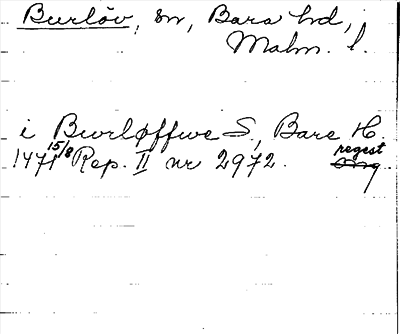 Burlöv, sn, Bara hd,
Malm. l.
i Burløffwe S., Bare H.
1471 15/8 Rep. II nr 2972. regest